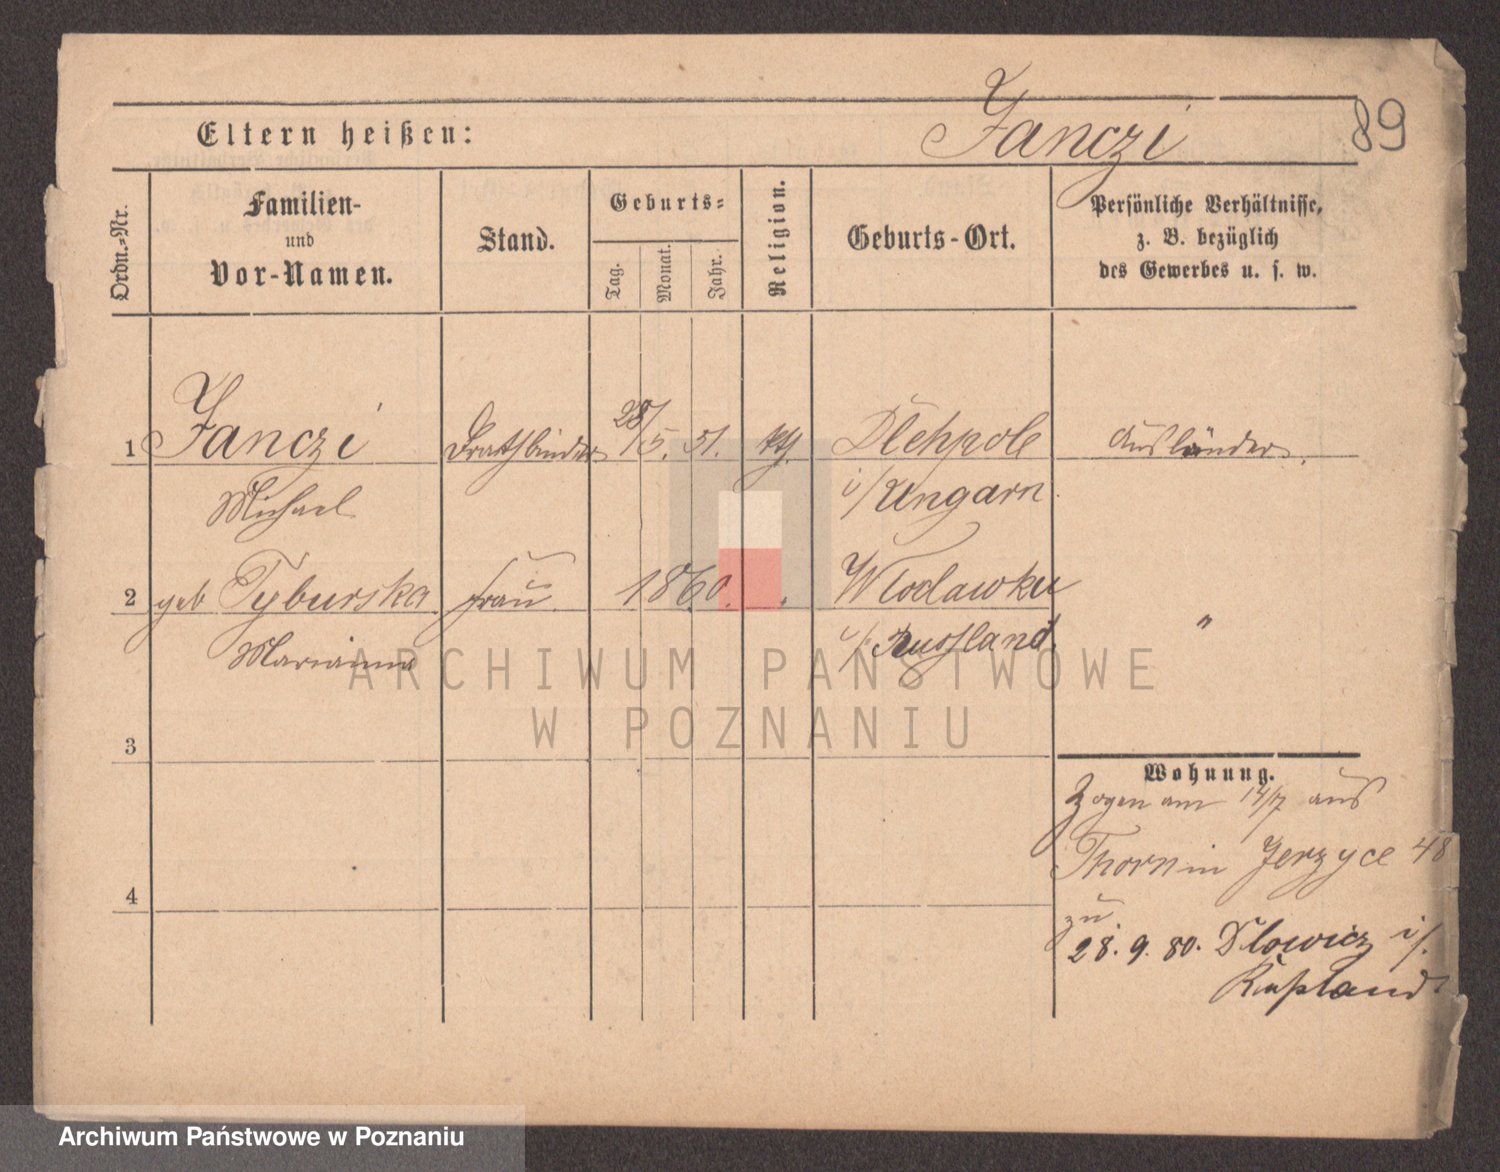 89
Eltern heißen: Janczi
Ordn.=Nr.
Familien-
und
Vor-Namen.
Stand.
Geburts=
Tag.
Monat.
Jahr.
Religion.
Geburts-Ort.
Persönliche Verhältnisse,
z. B. bezüglich
des Gewerbes u. s. w.
1 Janczi Drathbinder 28/5. 51. kth. Dlehpole Ausländer.
Michael i/Ungarn
2 geb Tyburska Frau 1860. Wloclawku "
Marianna i/Russland.
3
Wohnung.
Zogen am 14/7 aus
Thorn in Jerzyce 48
zu.
4
28. 9. 80. Dlowicz i/.
Rußland.
ARCHIWUM PAŃSTWOWE
W POZNANIU
Archiwum Państwowe w Poznaniu